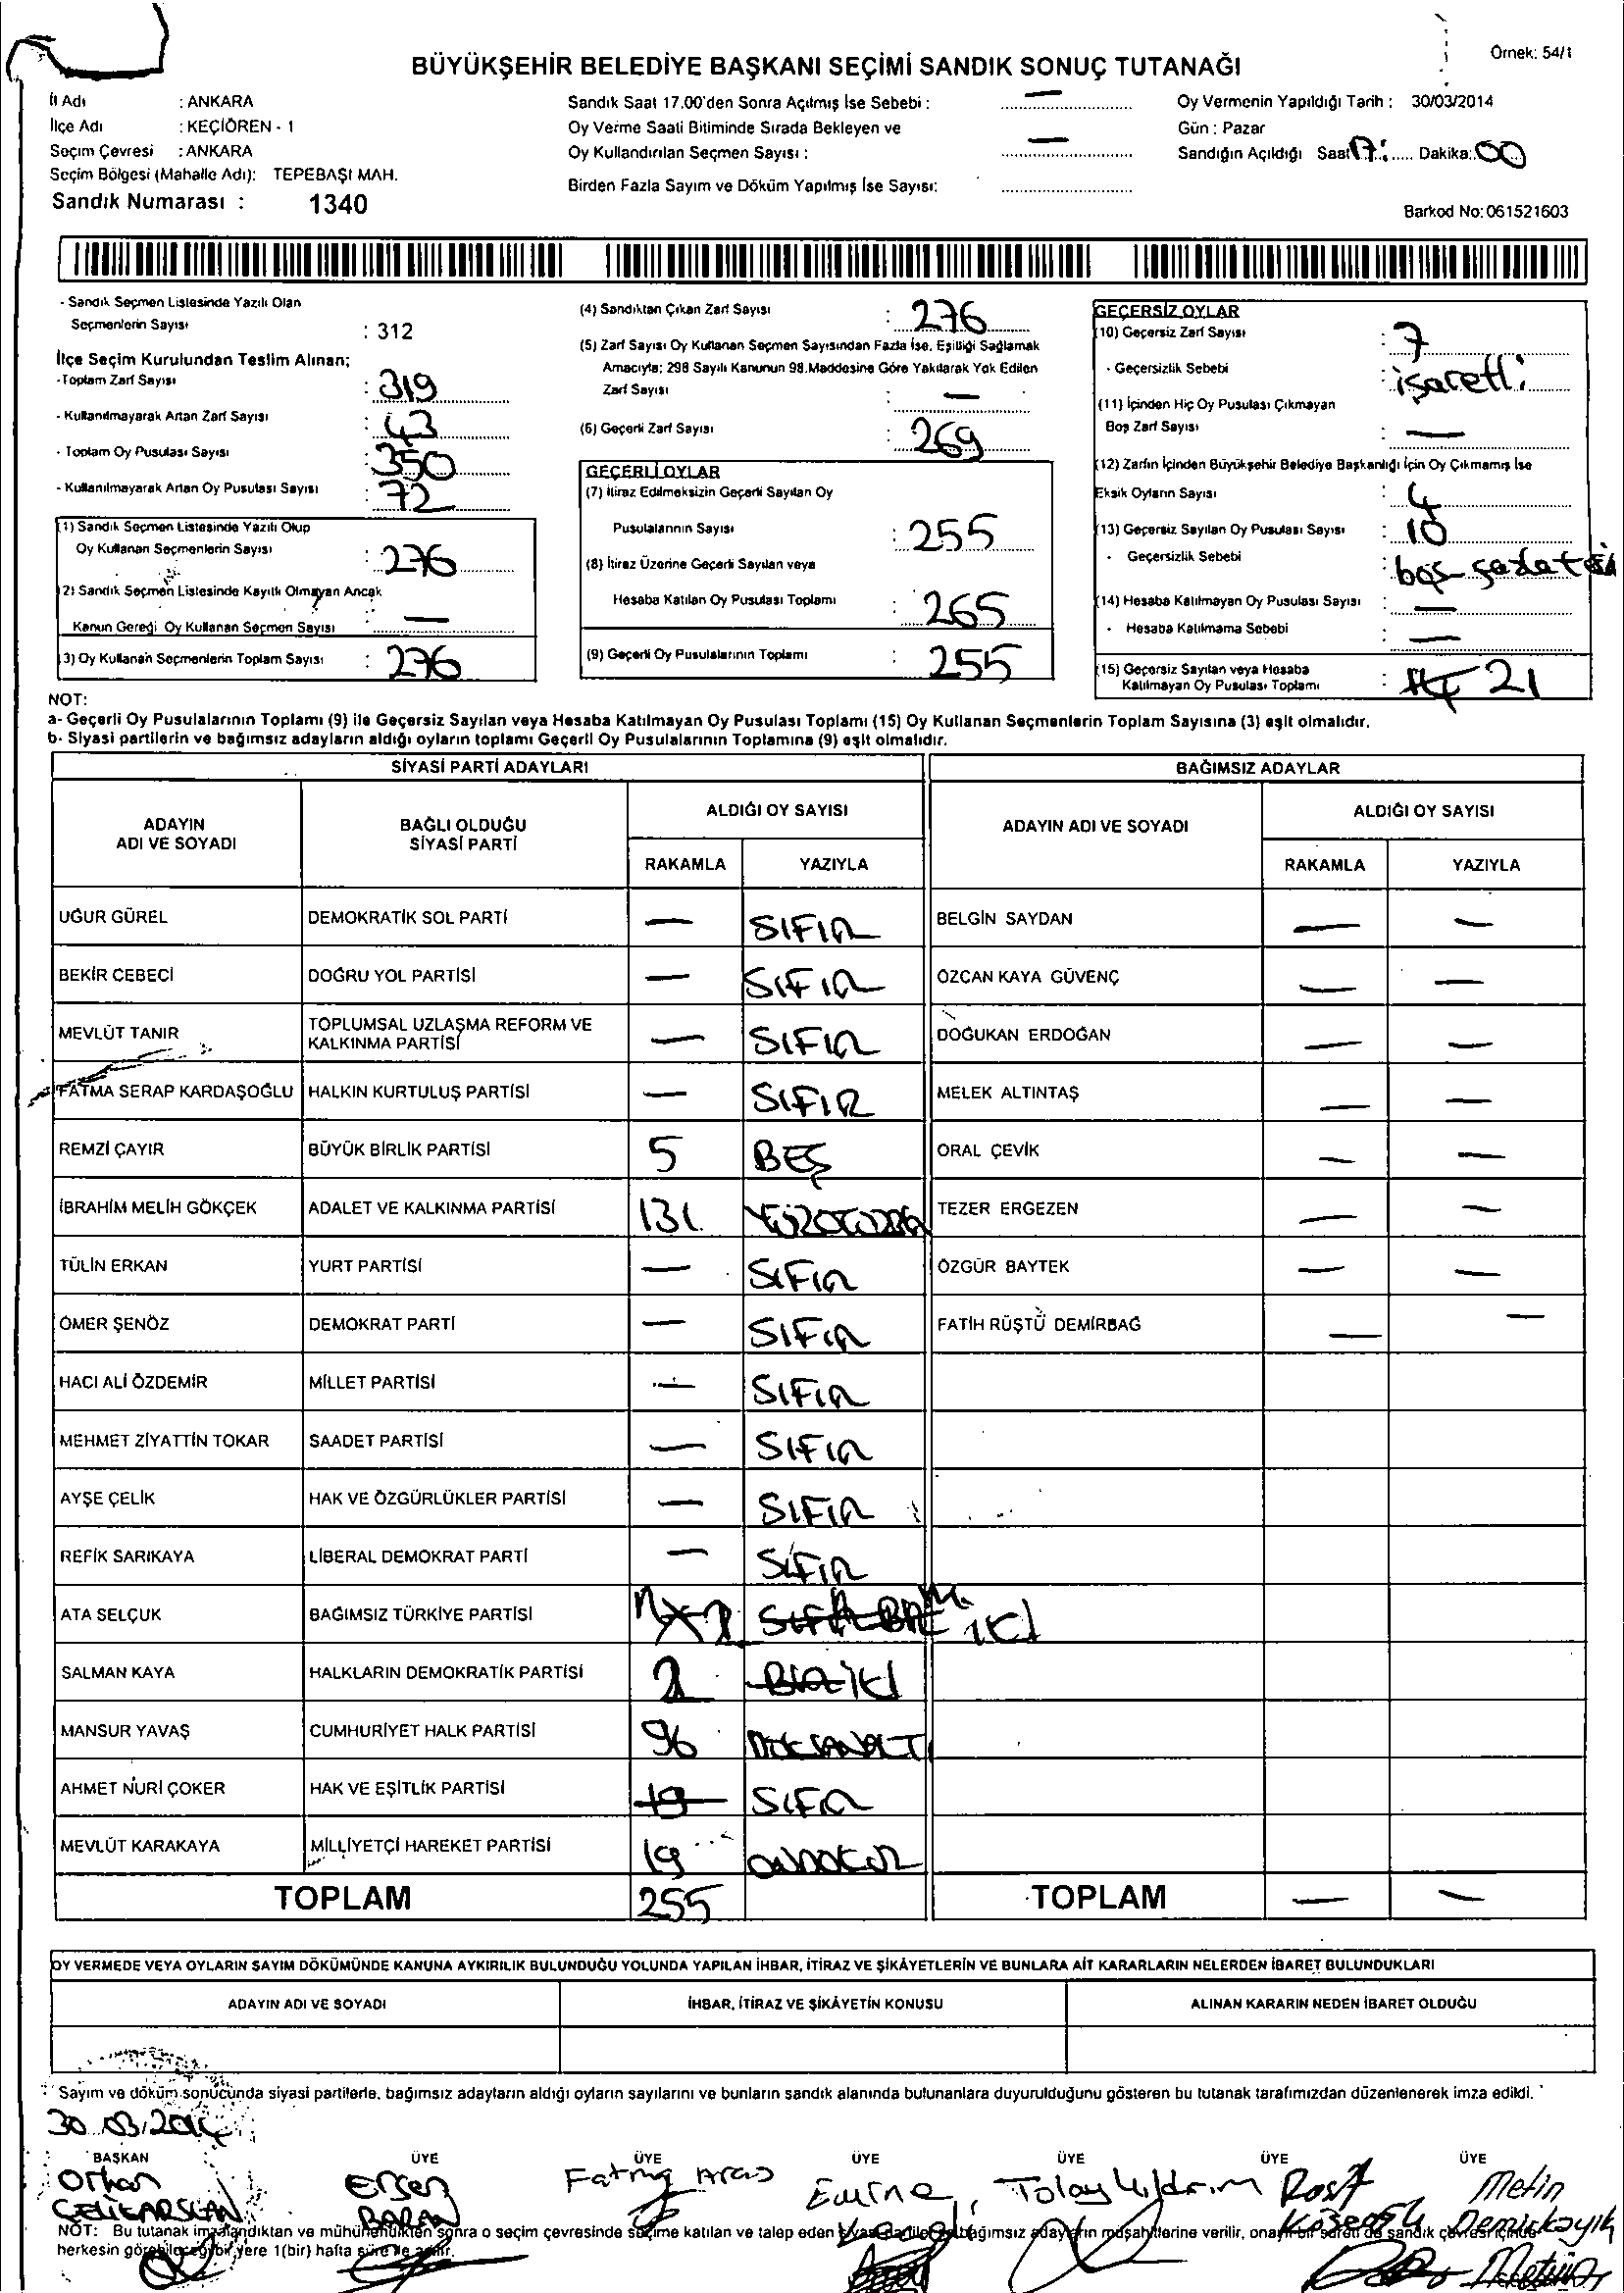 Örnek: 54/1
BÜYÜKŞEHİR BELEDİYE BAŞKANI SEÇİMİ SANDIK SONUÇ TUTANAĞI
İl Adı : ANKARA
İlçe Adı : KEÇİÖREN - 1
Seçim Çevresi : ANKARA
Seçim Bölgesi (Mahalle Adı): TEPEBAŞI MAH.
Sandık Numarası : 1340
Sandık Saat 17.00'den Sonra Açılmış İse Sebebi : —
Oy Verme Saati Bitiminde Sırada Bekleyen ve
Oy Kullandırılan Seçmen Sayısı : —
Birden Fazla Sayım ve Döküm Yapılmış İse Sayısı:
Oy Vermenin Yapıldığı Tarih : 30/03/2014
Gün : Pazar
Sandığın Açıldığı Saat 17: Dakika: 00
Barkod No: 061521603
- Sandık Seçmen Listesinde Yazılı Olan
Seçmenlerin Sayısı : 312
İlçe Seçim Kurulundan Teslim Alınan;
-Toplam Zarf Sayısı : 319
- Kullanılmayarak Artan Zarf Sayısı : 43
- Toplam Oy Pusulası Sayısı : 350
- Kullanılmayarak Artan Oy Pusulası Sayısı : 72
(1) Sandık Seçmen Listesinde Yazılı Olup
Oy Kullanan Seçmenlerin Sayısı : 276
(2) Sandık Seçmen Listesinde Kayıtlı Olmayan Ancak
Kanun Gereği Oy Kullanan Seçmen Sayısı : —
(3) Oy Kullanan Seçmenlerin Toplam Sayısı : 276
(4) Sandıktan Çıkan Zarf Sayısı : 276
(5) Zarf Sayısı Oy Kullanan Seçmen Sayısından Fazla İse, Eşitliği Sağlamak
Amacıyla; 298 Sayılı Kanunun 98.Maddesine Göre Yakılarak Yok Edilen
Zarf Sayısı : —
(6) Geçerli Zarf Sayısı : 269
GEÇERLİ OYLAR
(7) İtiraz Edilmeksizin Geçerli Sayılan Oy
Pusulalarının Sayısı : 255
(8) İtiraz Üzerine Geçerli Sayılan veya
Hesaba Katılan Oy Pusulası Toplamı : 265
(9) Geçerli Oy Pusulalarının Toplamı : 255
GEÇERSİZ OYLAR
(10) Geçersiz Zarf Sayısı : 7
- Geçersizlik Sebebi : işaretli
(11) İçinden Hiç Oy Pusulası Çıkmayan
Boş Zarf Sayısı : —
(12) Zarfın İçinden Büyükşehir Belediye Başkanlığı İçin Oy Çıkmamış İse
Eksik Oyların Sayısı : 4
(13) Geçersiz Sayılan Oy Pusulası Sayısı : 10
- Geçersizlik Sebebi : boş
(14) Hesaba Katılmayan Oy Pusulası Sayısı : —
- Hesaba Katılmama Sebebi : —
(15) Geçersiz Sayılan veya Hesaba
Katılmayan Oy Pusulası Toplamı : 21
NOT:
a- Geçerli Oy Pusulalarının Toplamı (9) ile Geçersiz Sayılan veya Hesaba Katılmayan Oy Pusulası Toplamı (15) Oy Kullanan Seçmenlerin Toplam Sayısına (3) eşit olmalıdır.
b- Siyasi partilerin ve bağımsız adayların aldığı oyların toplamı Geçerli Oy Pusulalarının Toplamına (9) eşit olmalıdır.
SİYASİ PARTİ ADAYLARI BAĞIMSIZ ADAYLAR
ADAYIN ADI VE SOYADI BAĞLI OLDUĞU SİYASİ PARTİ ALDIĞI OY SAYISI ADAYIN ADI VE SOYADI ALDIĞI OY SAYISI
RAKAMLA YAZIYLA RAKAMLA YAZIYLA
UĞUR GÜREL DEMOKRATİK SOL PARTİ — SIFIR BELGİN SAYDAN — —
BEKİR CEBECİ DOĞRU YOL PARTİSİ — SIFIR ÖZCAN KAYA GÜVENÇ — —
MEVLÜT TANIR TOPLUMSAL UZLAŞMA REFORM VE KALKINMA PARTİSİ — SIFIR DOĞUKAN ERDOĞAN — —
FATMA SERAP KARDAŞOĞLU HALKIN KURTULUŞ PARTİSİ — SIFIR MELEK ALTINTAŞ — —
REMZİ ÇAYIR BÜYÜK BİRLİK PARTİSİ 5 BEŞ ORAL ÇEVİK — —
İBRAHİM MELİH GÖKÇEK ADALET VE KALKINMA PARTİSİ 131 TEZER ERGEZEN — —
TÜLİN ERKAN YURT PARTİSİ — SIFIR ÖZGÜR BAYTEK — —
ÖMER ŞENÖZ DEMOKRAT PARTİ — SIFIR FATİH RÜŞTÜ DEMİRBAĞ — —
HACI ALİ ÖZDEMİR MİLLET PARTİSİ — SIFIR
MEHMET ZİYATTİN TOKAR SAADET PARTİSİ — SIFIR
AYŞE ÇELİK HAK VE ÖZGÜRLÜKLER PARTİSİ — SIFIR
REFİK SARIKAYA LİBERAL DEMOKRAT PARTİ — SIFIR
ATA SELÇUK BAĞIMSIZ TÜRKİYE PARTİSİ SIFIR BİR İKİ
SALMAN KAYA HALKLARIN DEMOKRATİK PARTİSİ 2 BİR İKİ
MANSUR YAVAŞ CUMHURİYET HALK PARTİSİ 96 DOKSANALTI
AHMET NURİ ÇOKER HAK VE EŞİTLİK PARTİSİ 19 SIFIR
MEVLÜT KARAKAYA MİLLİYETÇİ HAREKET PARTİSİ 19 ONDOKUZ
TOPLAM 255 TOPLAM — —
OY VERMEDE VEYA OYLARIN SAYIM DÖKÜMÜNDE KANUNA AYKIRILIK BULUNDUĞU YOLUNDA YAPILAN İHBAR, İTİRAZ VE ŞİKÂYETLERİN VE BUNLARA AİT KARARLARIN NELERDEN İBARET BULUNDUKLARI
ADAYIN ADI VE SOYADI İHBAR, İTİRAZ VE ŞİKÂYETİN KONUSU ALINAN KARARIN NEDEN İBARET OLDUĞU
Sayım ve döküm sonucunda siyasi partilerle, bağımsız adayların aldığı oyların sayılarını ve bunların sandık alanında bulunanlara duyurulduğunu gösteren bu tutanak tarafımızdan düzenlenerek imza edildi.
30.03.2014
BAŞKAN ÜYE ÜYE ÜYE ÜYE ÜYE ÜYE
Orhan Ersen Fatma Aras Emine Tolay Yıldırım Metin
ÇELİKARSLAN BARAN Demirkayık
NOT: Bu tutanak imzalandıktan ve mühürlendikten sonra o seçim çevresinde seçime katılan ve talep eden siyasi partiler ile bağımsız adayların müşahitlerine verilir, onaylı bir sureti de sandık çevresi içinde
herkesin görebileceği bir yere 1(bir) hafta süre ile asılır.